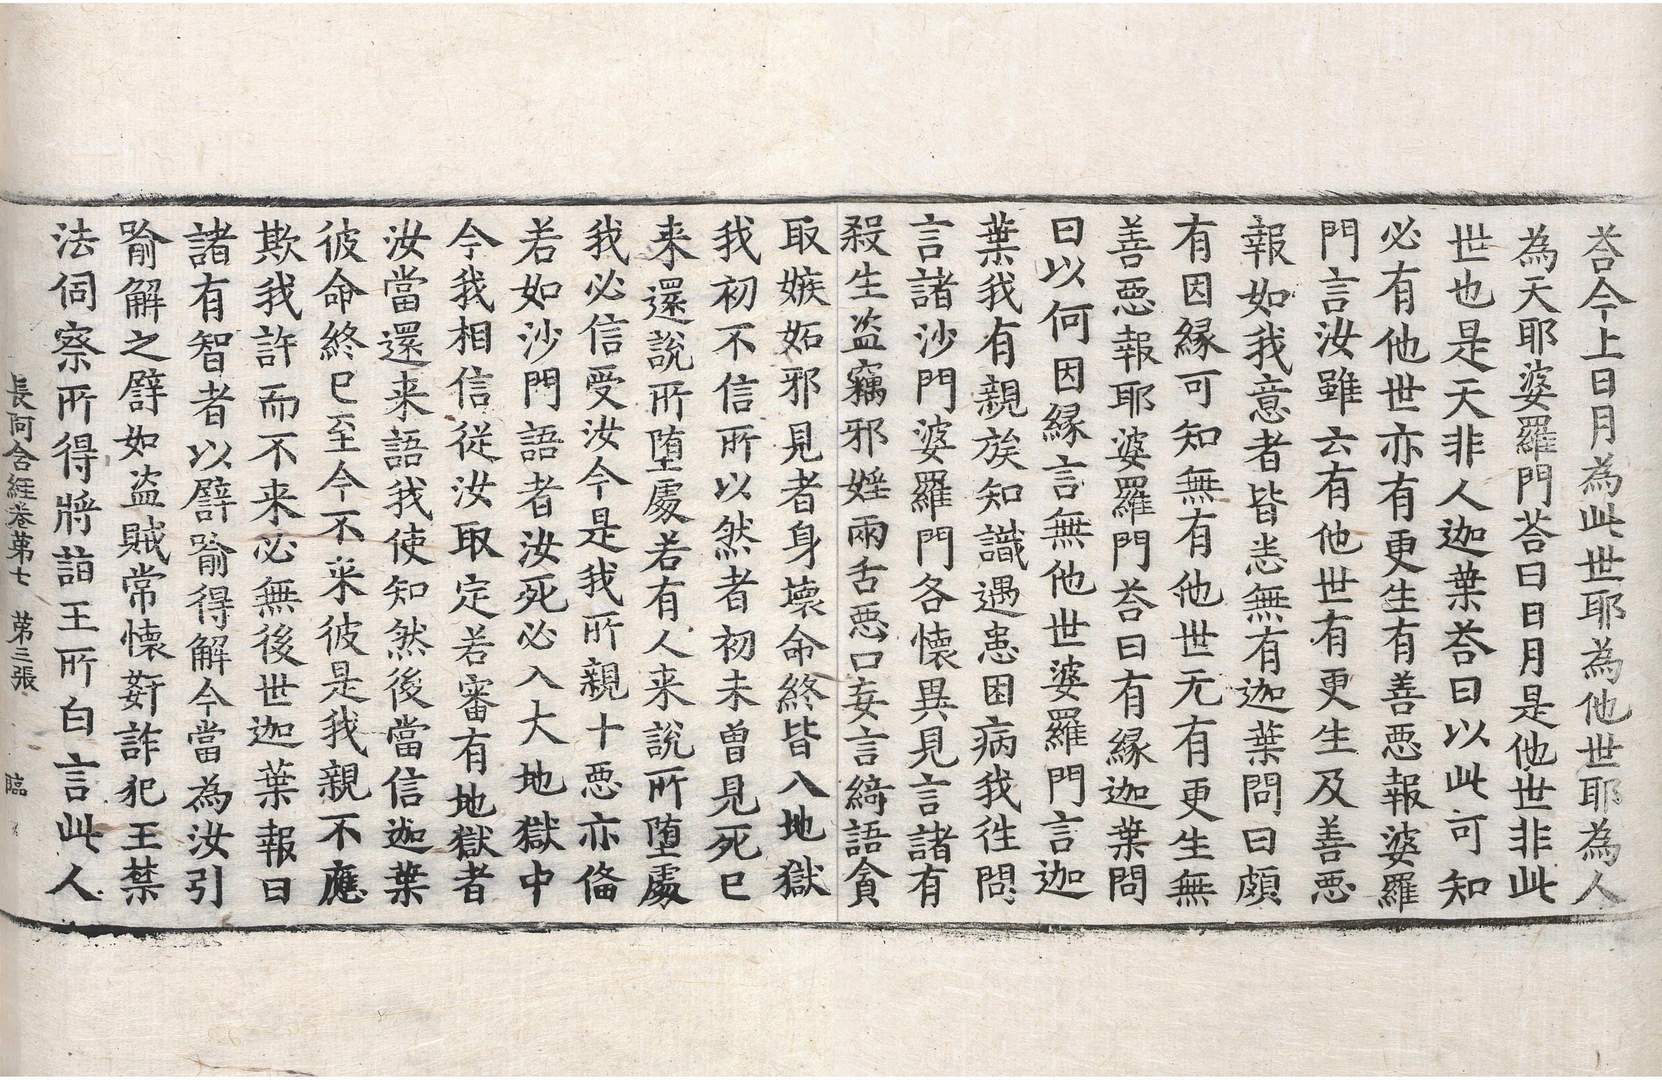 荅今上日月為此世耶為他世耶為人
為天耶婆羅門荅曰日月是他世非此
世也是天非人迦葉荅曰以此可知
必有他世亦有更生有善惡報婆羅
門言汝雖云有他世有更生及善惡
報如我意者皆悉無有迦葉問曰頗
有因緣可知無有他世无有更生無
善惡報耶婆羅門荅曰有緣迦葉問
曰以何因緣言無他世婆羅門言迦
葉我有親族知識遇患困病我往問
言諸沙門婆羅門各懷異見言諸有
殺生盜竊邪婬兩舌惡口妄言綺語貪
取嫉妬邪見者身壞命終皆入地獄
我初不信所以然者初未曾見死已
来還說所墮處若有人来說所墮處
我必信受汝今是我所親十惡亦俻
若如沙門語者汝死必入大地獄中
今我相信從汝取定若審有地獄者
汝當還来語我使知然後當信迦葉
彼命終已至今不来彼是我親不應
欺我許而不来必無後世迦葉報曰
諸有智者以譬喻得解今當為汝引
喻解之譬如盜賊常懷姧詐犯王禁
法伺察所得將詣王所白言此人
長阿含經卷第七 第三張 臨